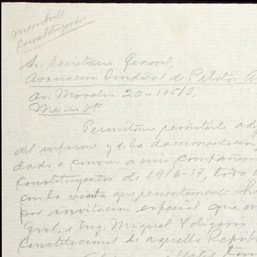 Sr. Secretario General,
Asociación Sindical de Pilotos A
Av. Morelos 20-105/3,
México D.F.
Permítome remitirle a
del informe y de la documentación
dado a conocer a mis compañeros
Constituyentes de 1916-17, todo
con la visita que recientemente
por invitación especial que
Gral. e Ing. Miguel Ydígoras
Constitucional de aquella Repúb